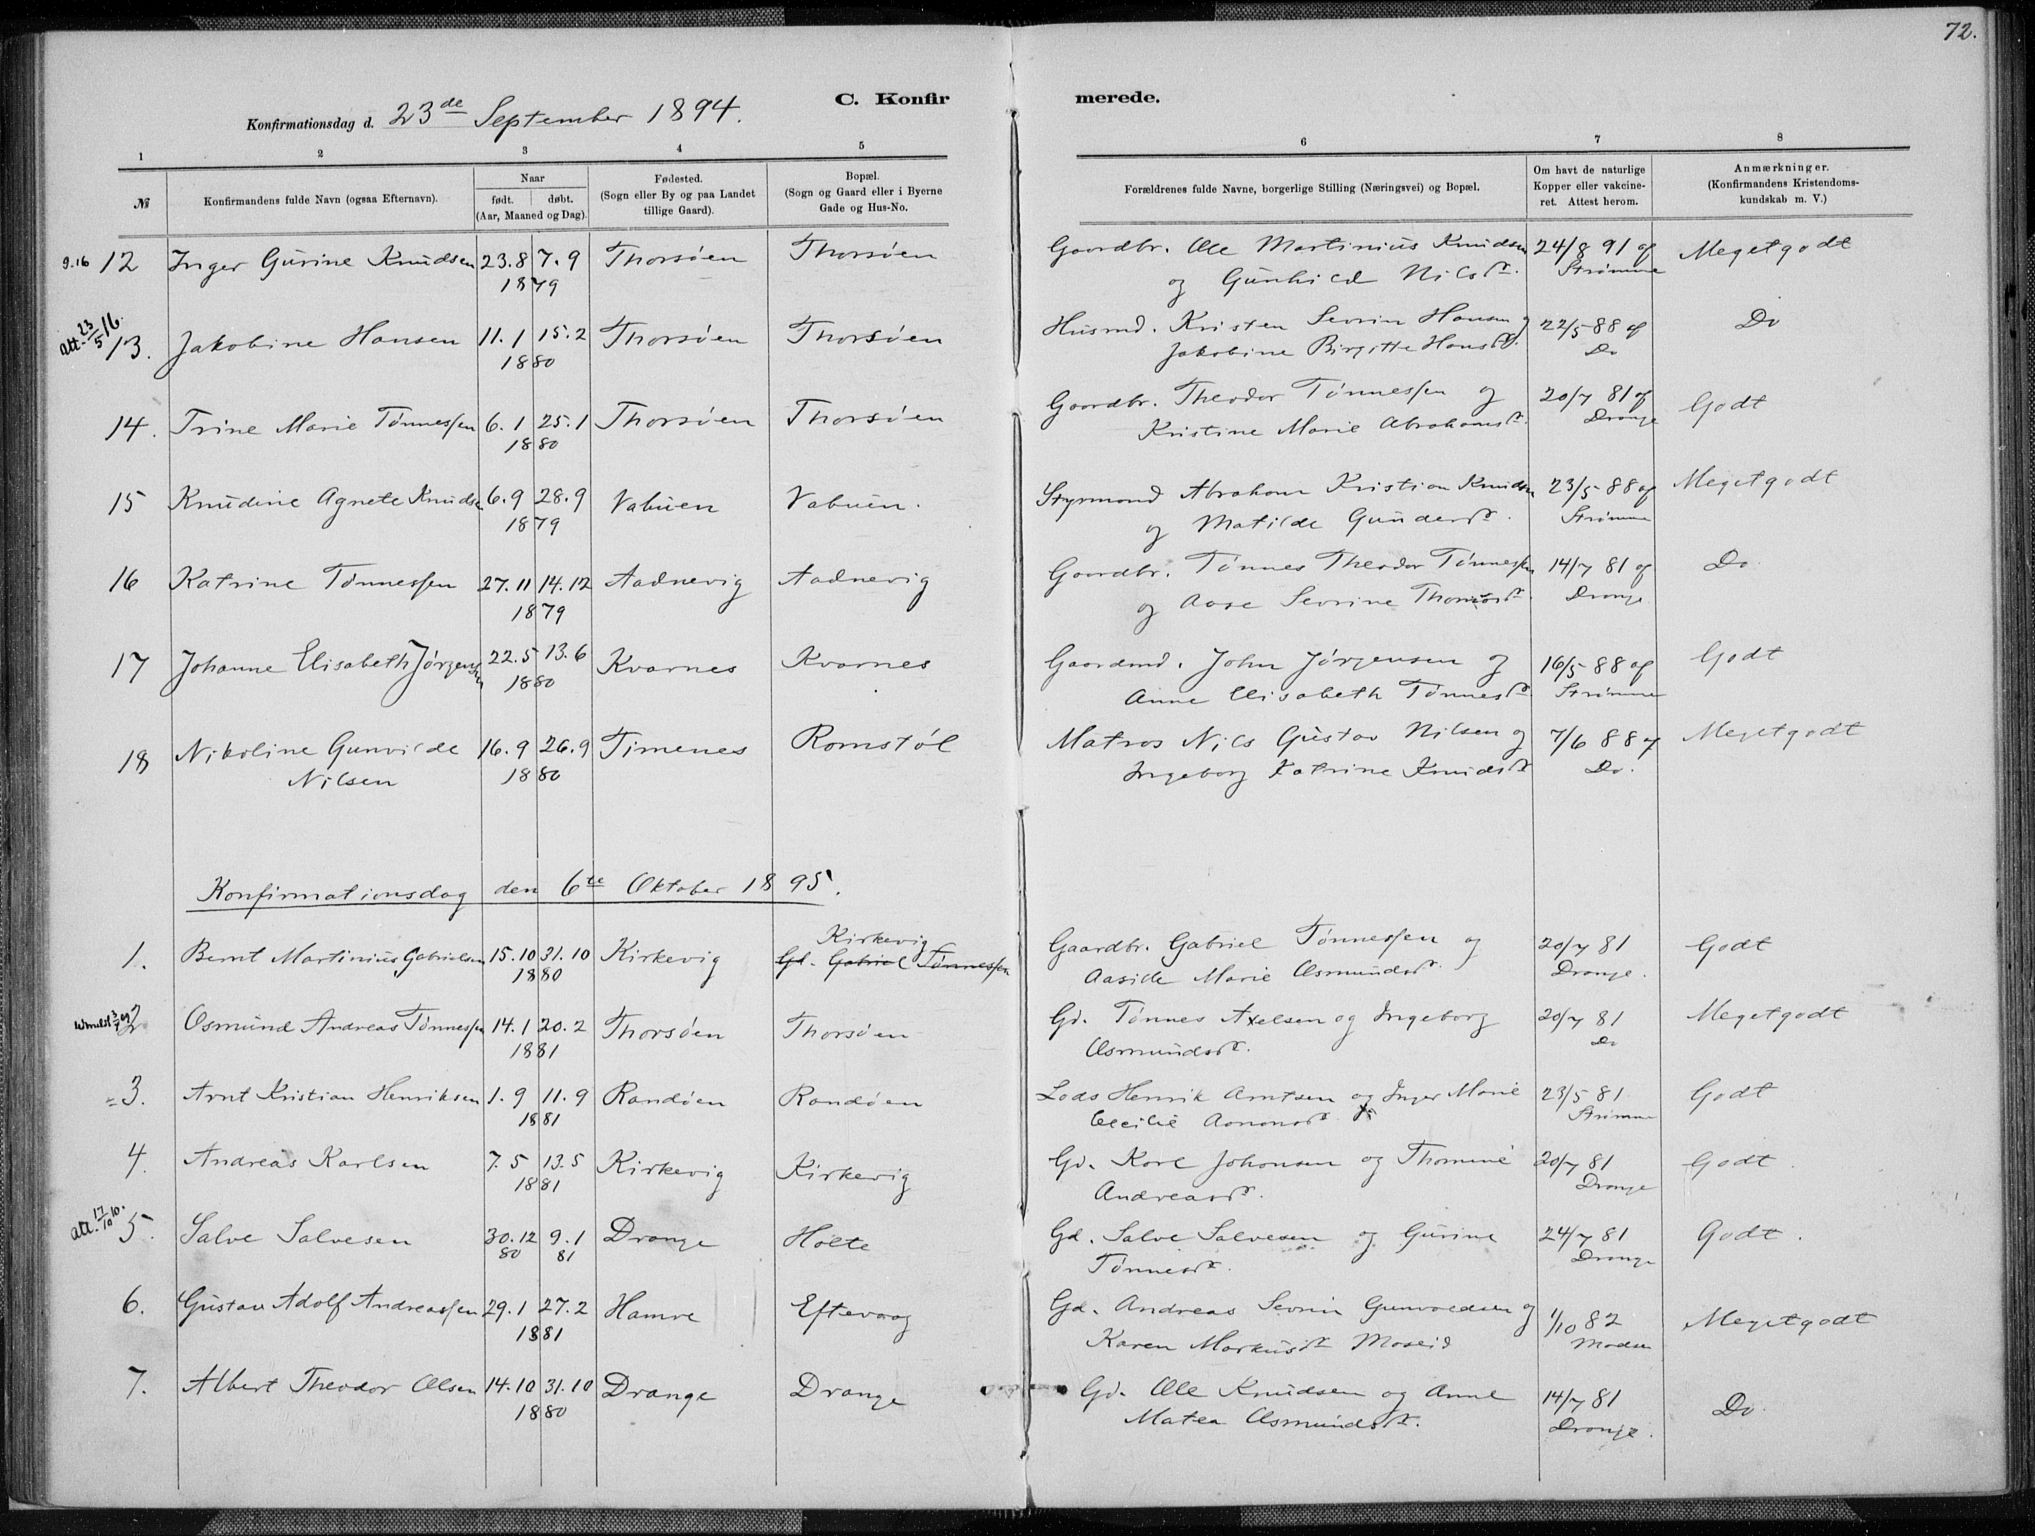 72.
C. Konfirmerede.
Konfirmationsdag d. 23de September 1894.
1 2 3 4 5 6 7 8
№ Konfirmandens fulde Navn (ogsaa Efternavn). Naar født. døbt. (Aar, Maaned og Dag). Fødested. (Sogn eller By og paa Landet tillige Gaard). Bopæl. (Sogn og Gaard eller i Byerne Gade og Hus-No. Forældrenes fulde Navne, borgerlige Stilling (Næringsvei) og Bopæl. Om havt de naturlige Kopper eller vakcineret. Attest herom. Anmærkninger. (Konfirmandens Kristendomskundskab m. V.)
9.16 12 Inger Gurine Knudsen 23.8 7.9 Thorsøen Thorsøen Gaardbr. Ole Martinius Knudsen 24/8 91 af Megetgodt
1879 og Gunhild Nilsdr. Strømme
Att. 23/5 16. 13. Jakobine Hansen 11.1 15.2 Thorsøen Thorsøen Husmd. Kristen Sevrin Hansen og 22/5 88 af Do
1880 Jakobine Birgitte Hansdr. Do
14. Trine Marie Tønnessen 6.1 25.1 Thorsøen Thorsøen Gaardbr. Theodor Tønnessen og 20/7 81 af Godt
1880 Kristine Marie Abrahamsdr. Drange
15 Knudine Agnete Knudsen 6.9 28.9 Vabuen Vabuen. Styrmand Abraham Kristian Knudsen 23/5 88 af Megetgodt
1879 og Matilde Gundersdr. Strømme
16 Katrine Tønnessen 27.11 14.12 Aadnevig Aadnevig Gaardbr. Tønnes Theodor Tønnessen 14/7 81 af Do
1879 og Aase Sevrine Thomasdr. Drange
17 Johanne Elisabeth Jørgensen 22.5 13.6 Kvarnes Kvarnes Gaardmd. John Jørgensen og 16/5 88 af Godt
1880 Anne Elisabeth Tønnesdr. Strømme
18 Nikoline Gunvilde 16.9 26.9 Timenes Romstøl Matros Nils Gustav Nilsen og 7/6 88 af Megetgodt
Nilsen 1880 Ingeborg Katrine Knudsdr. Do.
Konfirmationsdag den 6te Oktober 1895.
1. Bernt Martinius Gabrielsen 15.10 31.10 Kirkevig Kirkevig Gd. Gabriel Tønnessen Gaardbr. Gabriel Tønnessen og 20/7 81 Godt
1880 Aasille Marie Osmundsdr. Drange.
2 Osmund Andreas Tønnessen 14.1 20.2 Thorsøen Thorsøen Gd. Tønnes Axelsen og Ingeborg 20/7 81 Megetgodt
1881 Osmundsdr. Do
3. Arnt Kristian Henriksen 1.9 11.9 Randøen Randøen Lods Henrik Arntsen og Inger Marie 23/5 81 Godt
1881 Cecilie Aanonsdr. Strømme
4. Andreas Karlsen 7.5 13.5 Kirkevig Kirkevig Gd. Karl Johansen og Thomine 20/7 81 Godt.
1881 Andreasdr. Drange
Att. 17/10 10. 5. Salve Salvesen 30.12 9.1 Drange Holte Gd. Salve Salvesen og Gurine 24/7 81 Godt.
80 81 Tønnesdr. Drange
6. Gustav Adolf Andreassen 29.1 27.2 Hamre Eftevaag Gd. Andreas Sevrin Gunvaldsen og 1/10 82 Megetgodt
1881 Karen Markusdr. Moseid Madsen
7. Albert Theodor Olsen 14.10 31.10 Drange Drange Gd. Ole Knudsen og Anne 14/7 81 Do.
1880 Matea Osmundsdr. Drange.